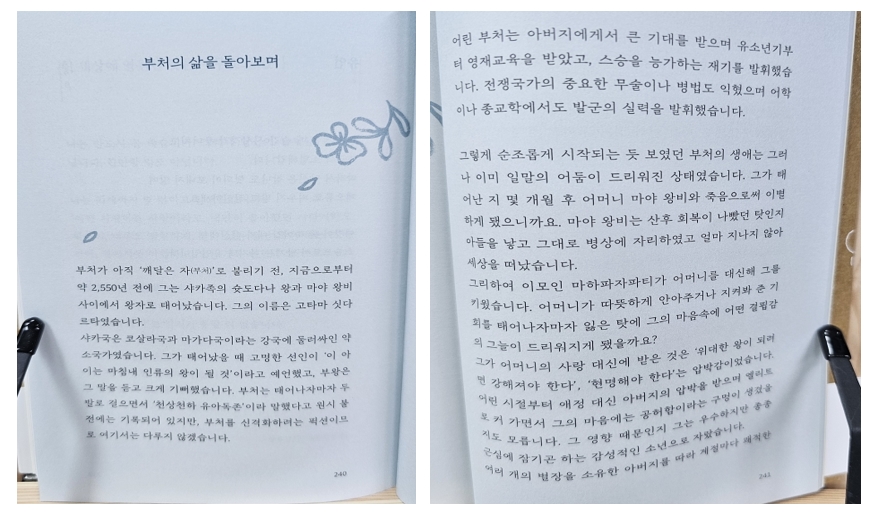 부처의 삶을 돌아보며
부처가 아직 '깨달은 자(부처)'로 불리기 전, 지금으로부터
약 2,550년 전에 그는 샤카족의 슛도다나 왕과 마야 왕비
사이에서 왕자로 태어났습니다. 그의 이름은 고타마 싯다
르타였습니다.
샤카국은 코살라국과 마가다국이라는 강국에 둘러싸인 약
소국가였습니다. 그가 태어났을 때 고명한 선인이 '이 아
이는 마침내 인류의 왕이 될 것'이라고 예언했고, 부왕은
그 말을 듣고 크게 기뻐했습니다. 부처는 태어나자마자 두
발로 걸으면서 '천상천하 유아독존'이라 말했다고 원시 불
전에는 기록되어 있지만, 부처를 신격화하려는 픽션이므
로 여기서는 다루지 않겠습니다.
240
어린 부처는 아버지에게서 큰 기대를 받으며 유소년기부
터 영재교육을 받았고, 스승을 능가하는 재기를 발휘했습
니다. 전쟁국가의 중요한 무술이나 병법도 익혔으며 어학
이나 종교학에서도 발군의 실력을 발휘했습니다.
그렇게 순조롭게 시작되는 듯 보였던 부처의 생애는 그러
나 이미 일말의 어둠이 드리워진 상태였습니다. 그가 태
어난 지 몇 개월 후 어머니 마야 왕비와 죽음으로써 이별
하게 됐으니까요. 마야 왕비는 산후 회복이 나빴던 탓인지
아들을 낳고 그대로 병상에 자리하였고 얼마 지나지 않아
세상을 떠났습니다.
그리하여 이모인 마하파자파티가 어머니를 대신해 그를
키웠습니다. 어머니가 따뜻하게 안아주거나 지켜봐 준 기
회를 태어나자마자 잃은 탓에 그의 마음속에 어떤 결핍감
의 그늘이 드리워지게 됐을까요?
그가 어머니의 사랑 대신에 받은 것은 '위대한 왕이 되려
면 강해져야 한다', '현명해야 한다'는 압박감이었습니다.
어린 시절부터 애정 대신 아버지의 압박을 받으며 엘리트
로 커 가면서 그의 마음에는 공허함이라는 구멍이 생겼을
지도 모릅니다. 그 영향 때문인지 그는 우수하지만 종종
근심에 잠기곤 하는 감성적인 소년으로 자랐습니다.
여러 개의 별장을 소유한 아버지를 따라 계절마다 쾌적한
241